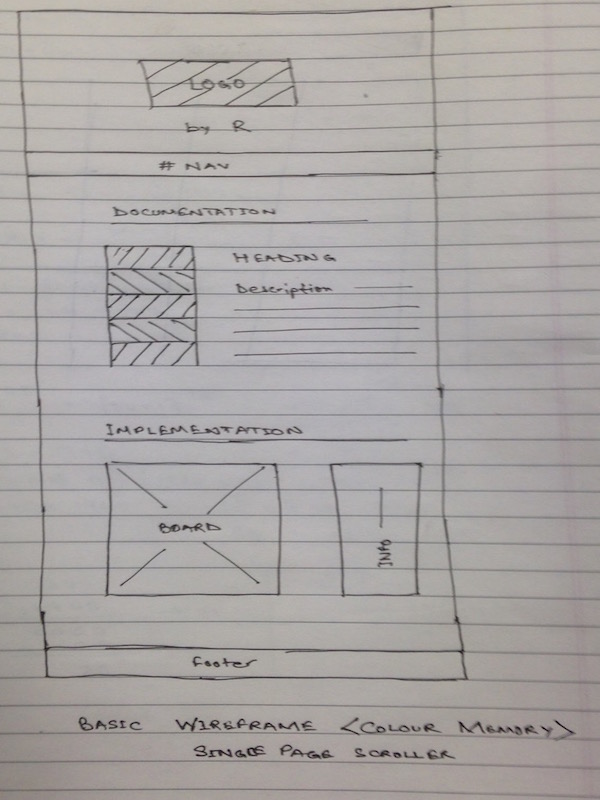 LOGO
by R
# NAV
DOCUMENTATION
HEADING
Description
IMPLEMENTATION
BOARD
INFO
footer
BASIC WIREFRAME <COLOUR MEMORY>
SINGLE PAGE SCROLLER